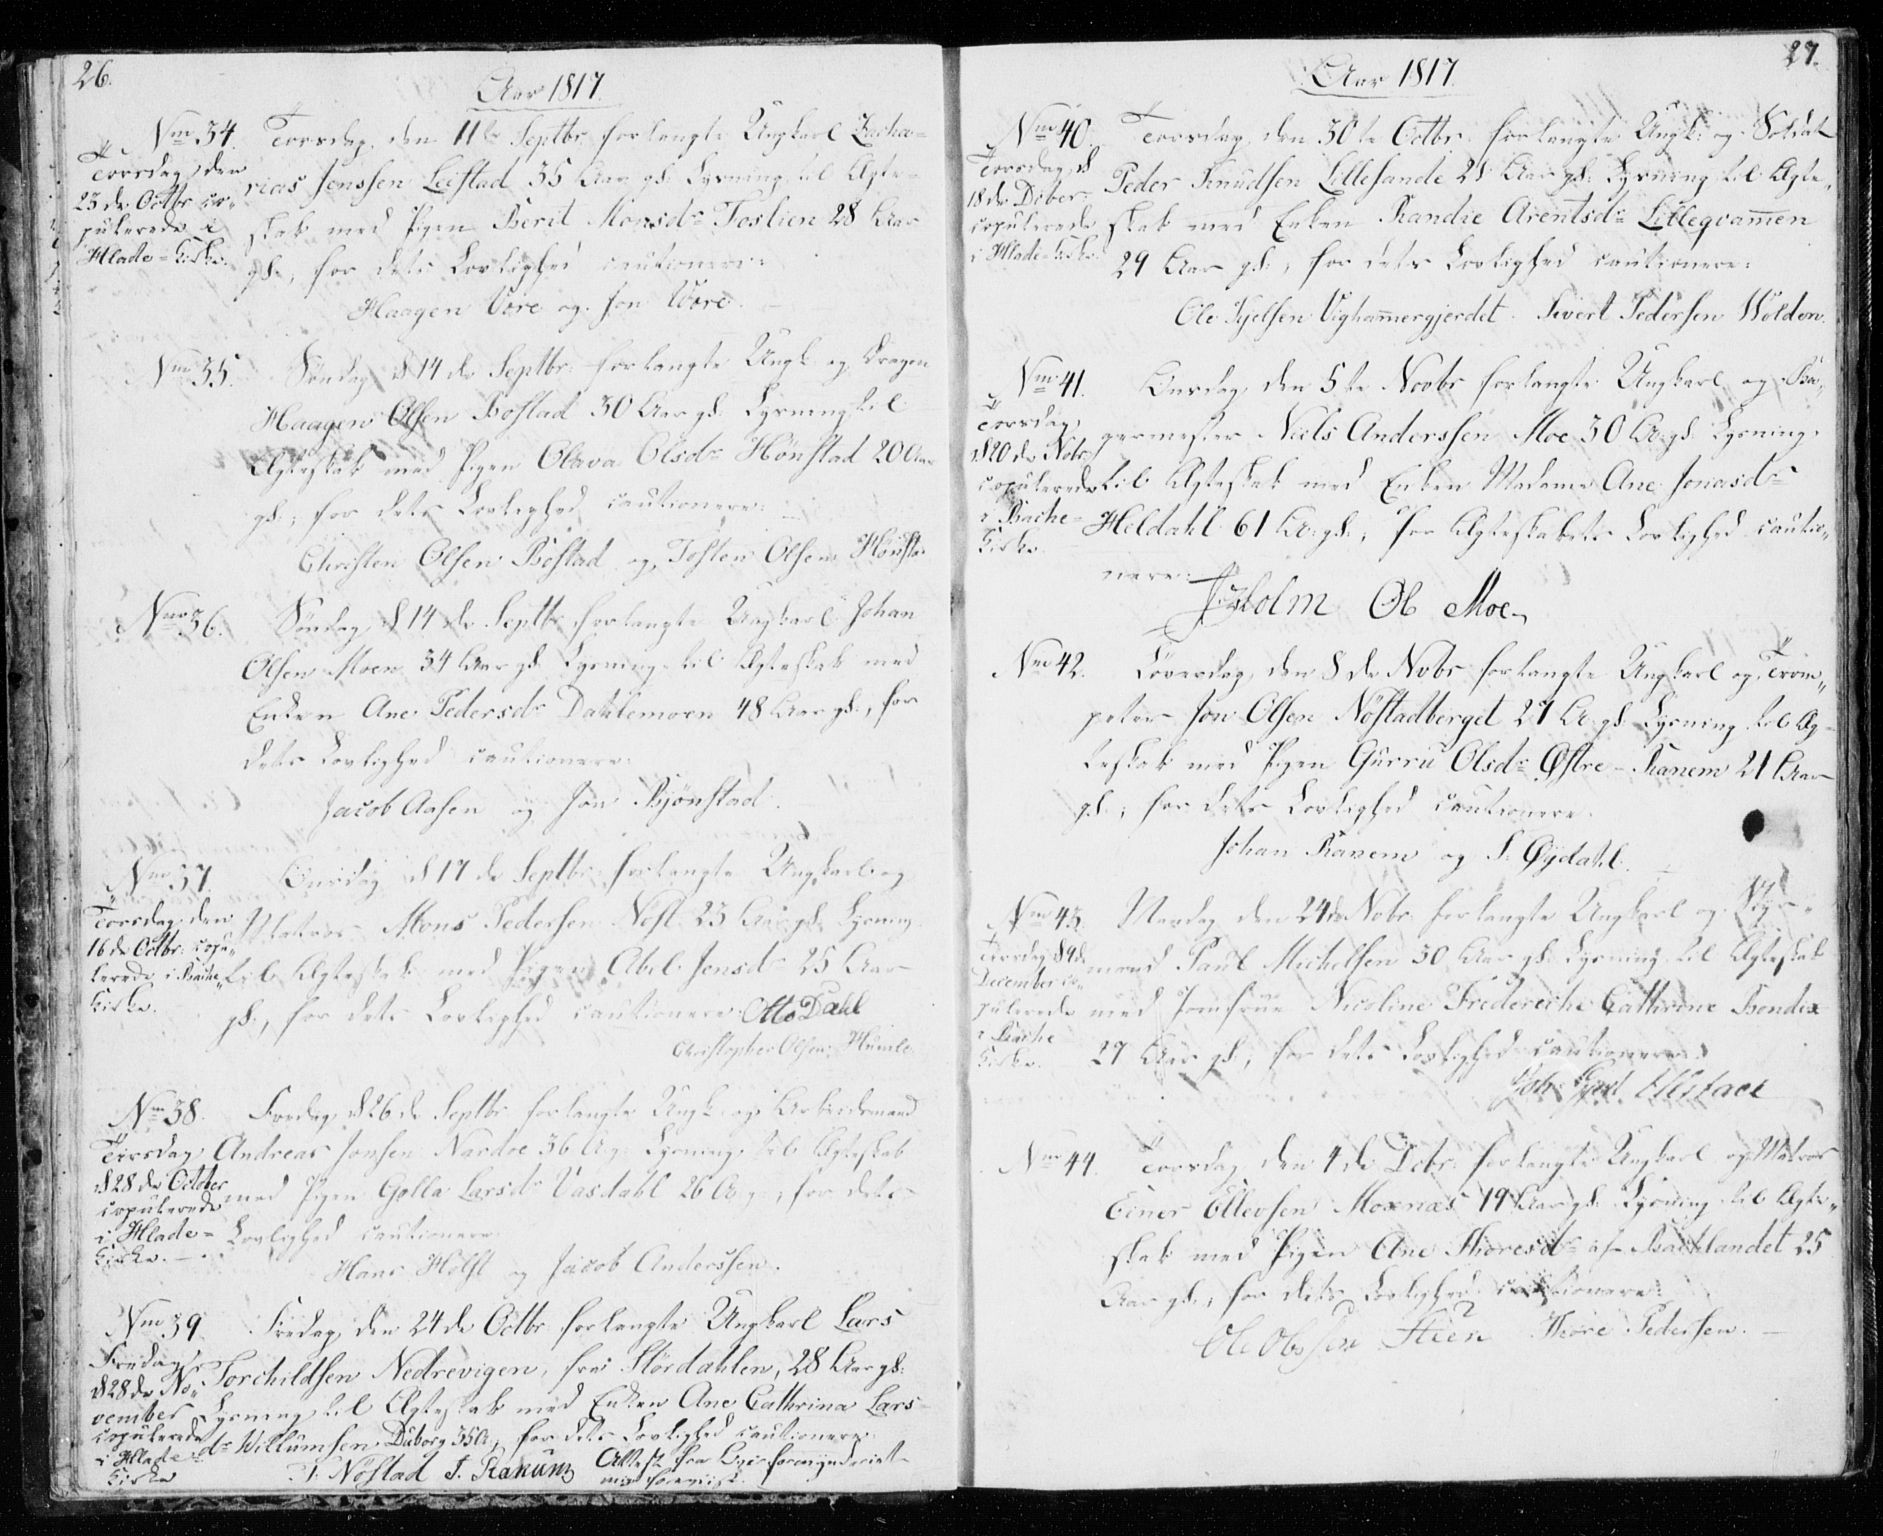 26.
Aar 1817.
Nro 34. Torsdag den 11te Septbr forlangte Ungkarl Zacha=
rias Jenssen Leistad 35 Aar gl. Lysning til Ægte=
skab med Pigen Berit Monsdr Toslien 28 Aar
gl., for dets Lovlighed cautionere:
Haagen Være og Jon Være.
Torsdag den
23de Octbr co=
pulerede i
Hlade=Kirke.
Nro 35. Søndag d 14de Septbr forlangte Ungk. og Dragon
Haagen Olsen Bostad 30 Aar gl. Lysning til
Ægteskab med Pigen Olava Olsdr Hønstad 20 Aar
gl., for dets Lovlighed cautionere:
Christen Olsen Bostad og Tosten Olsen Hønsta
Nro 36. Søndag d 14de Septbr forlangte Ungkarl Johan
Olsen Moen 34 Aar gl. Lysning til Ægteskab med
Enken Ane Pedersdr Dahlemoen 48 Aar gl., for
dets Lovlighed cautionere:
Jacob Aasen og Jon Bjønstad.
Nro 37. Onsdag d 17de Septbr forlangte Ungkarl og
Matros Mons Pedersen Vest 23 Aar gl. Lysning
til Ægteskab med Pigen Abel Jensdr 25 Aar
gl., for dets Lovlighed cautionere: Otto Dahl
Christopher Olsen Humle
Torsdag den
16de Octbr copu=
lerede i Bache
Kirke.
Nro 38. Fredag d 26de Septbr forlangte Ungk. og Arbeidsmand
Andreas Jonsen Nardoe 36 A. g. Lysning til Ægteskab
med Pigen Golla Larsdr Vasdahl 26 A. g., for dets
Lovlighed cautionere
Hans Holst og Jacob Anderssen.
Tirsdag
d 28de October
copulerede
i Hlade=
Kirke.
Nro 39. Fredag den 24de Octbr forlangte Ungkarl Lars
Torchildsen Nedrevigen, fra Størdahlen, 28 Aar gl.
Lysning til Ægteskab med Enken Ane Cathrina Lars
dr Willumsen Duborg 35 A., for dets Lovlighed cautionere:
J. Nøstad J. Ranum Attest fra Overformynderiet
mig foreviist.
Fredag
d 28de No=
vember
copulerede
i Hlade
Kirke
27.
Aar 1817.
Nro 40. Torsdag den 30te Octbr forlangte Ungk. og Soldat
Peder Knudsen Lillesande 28 Aar gl. Lysning til Ægte=
skab med Enken Randie Arentsdr Lilleqvamen
29 Aar gl., for dets Lovlighed cautionere:
Ole Kjelsen Vighammergjerdet. Sivert Pedersen Wolden.
Torsdag d
18de Dcber
copulerede
i Hlade=Kirke.
Nro 41. Onsdag den 5te Novbr forlangte Ungkarl og Ba=
germester Niels Anderssen Moe 30 A. gl. Lysning
til Ægteskab med Enken Madame Ane Jonasdr
Heldahl 61 A. gl., for Ægteskabets Lovlighed cautio=
nere:
Holm Ob Moe
Torsdag
d 20de Nobr
copulerede
i Bache=
Kirke.
Nro 42. Løverdag den 8de Nobr forlangte Ungkarl og Trom=
peter Jon Olsen Nøstadberget 27 A. gl. Lysning til Æg=
teskab med Pigen Gurru Olsdr Østre=Ranem 21 Aar
gl., for dets Lovlighed cautionere.
Johan Ranem og S. Øydahl.
Nro 43. Mandag den 24de Nobr forlangte Ungkarl og
mand Paul Michelsen 30 Aar gl. Lysning til Ægteskab
med Jomfrue Nicoline Frederiche Cathrine Bendix
27 Aar gl., for dets Lovlighed cautionere:
Ellstad
Tirsdag d 9de
December co=
pulerede
i Bache
Kirke.
Nro 44. Torsdag den 4de Dcbr. forlangte Ungkarl og Matros
Einer Ellevsen Moxnas 19 Aar gl. Lysning til Ægte=
skab med Pigen Ane Thoresdr af Bachlandet 25
Aar gl., for dets Lovlighed cautionere:
Ole Olsen Stien Thore Pedersen.